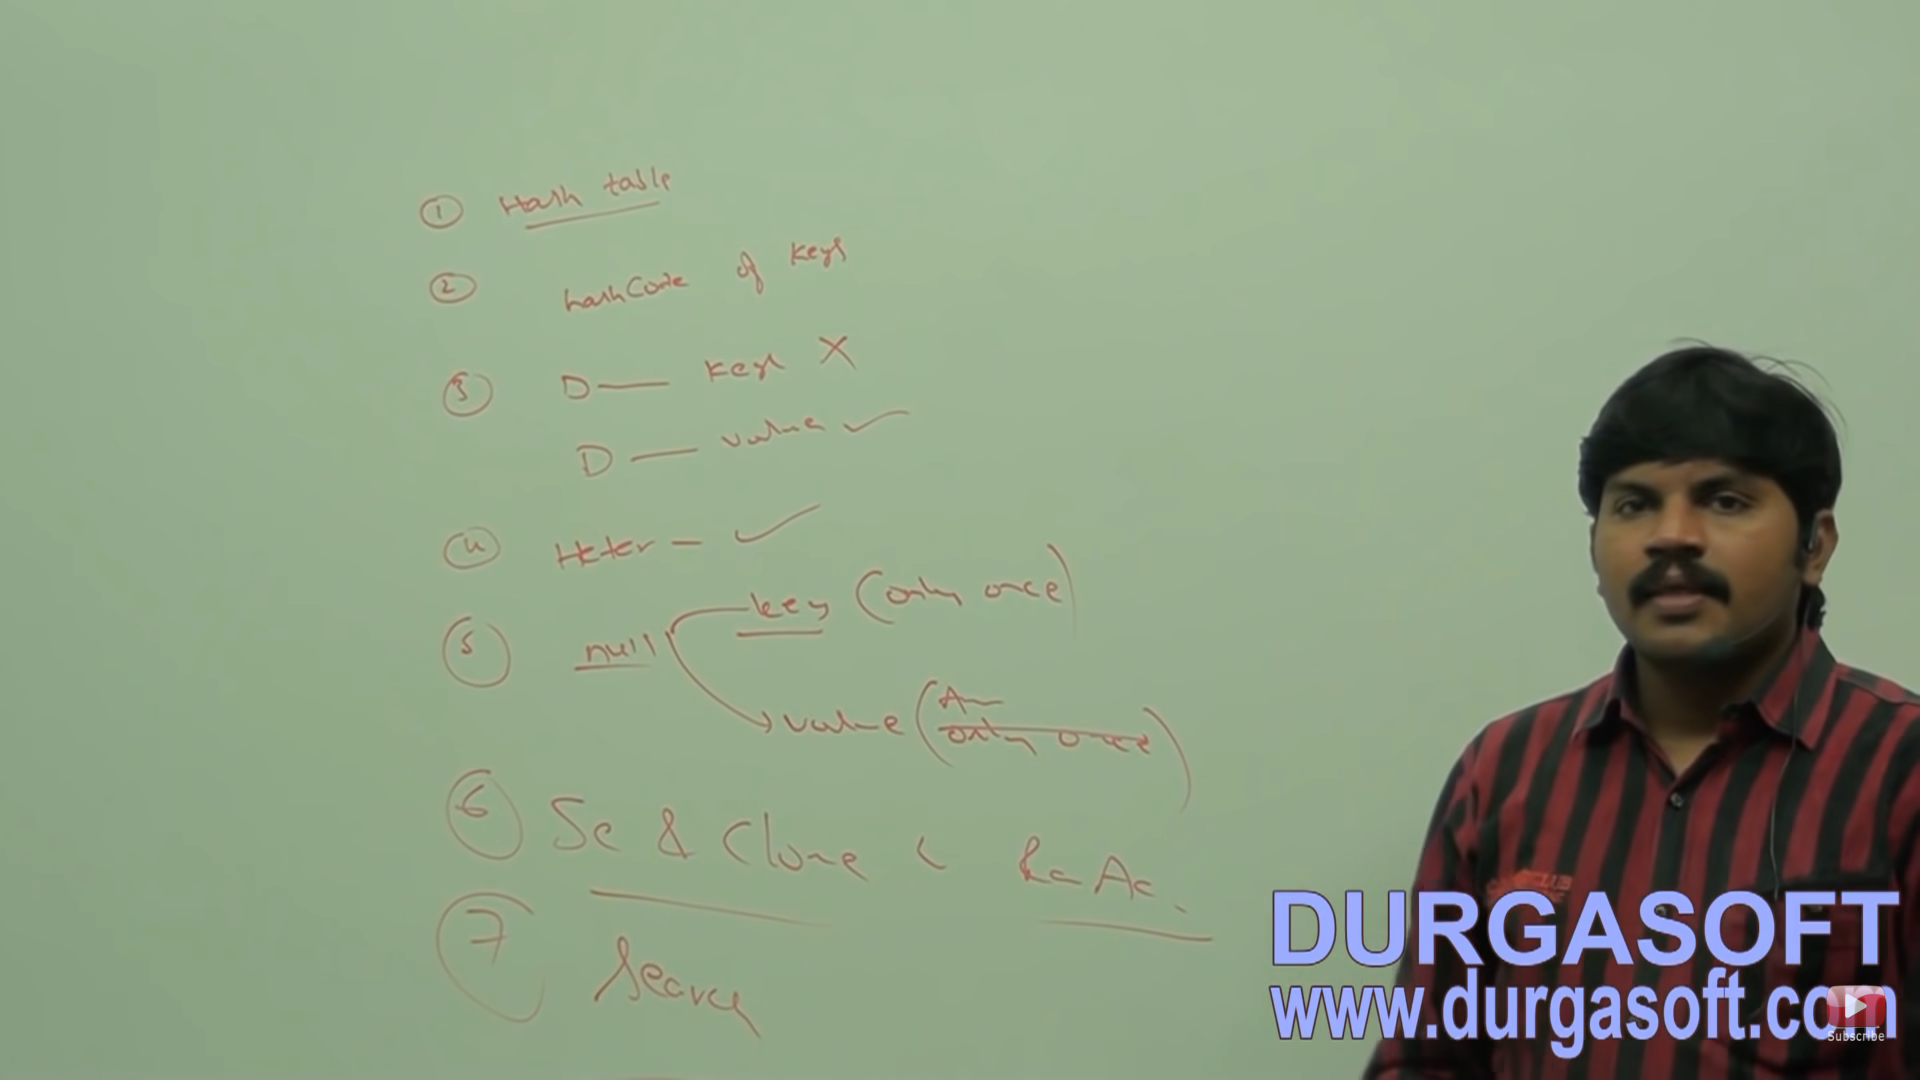 ① Hash table
② hashCode of keys
③ D — keys X
D — value ✓
④ Heter — ✓
⑤ null key (only once)
value (An only once)
⑥ Se & Clone < Ra Ac.
⑦ Search
DURGASOFT
www.durgasoft.com
Subscribe